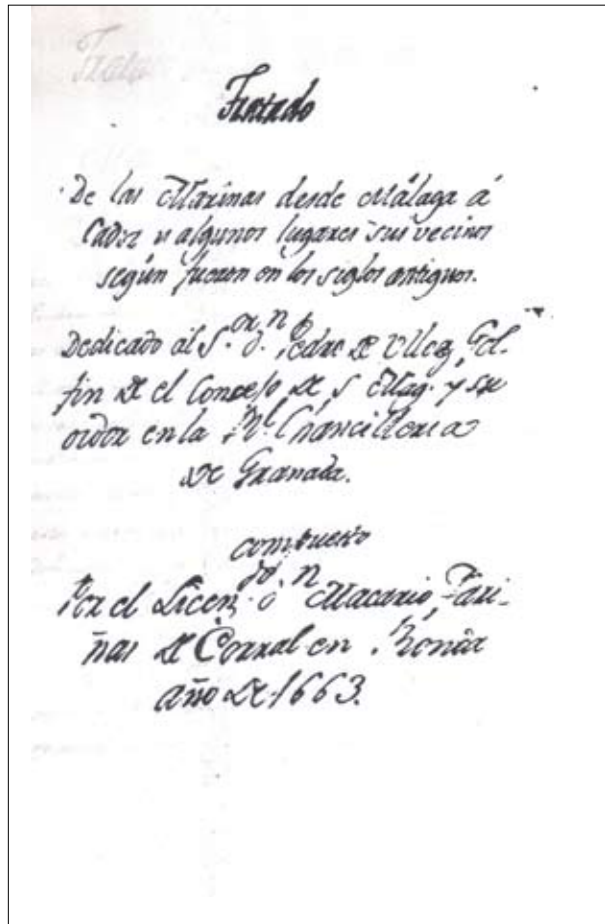 Tratado
De las Marinas desde Málaga á
Cadiz y algunos lugares sus vecinos
según fueron en los siglos antiguos.
Dedicado al S.or D.n Pedro de Ulloa Gol-
fin de el Consejo de S Mag. y su
oidor en la Rl. Chancilleria
de Granada.
compuesto
Por el Licen.do D.n Macario Fari-
ñas de Corral en Ronda
año de 1663.